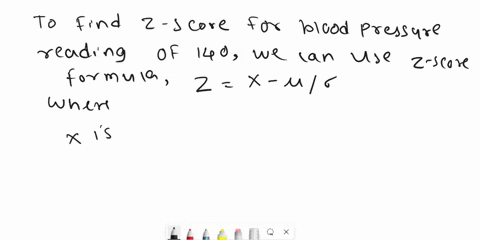 To find z-score for blood pressure
reading of 140, we can use z-score
formula, z = x - μ/σ
where
x is